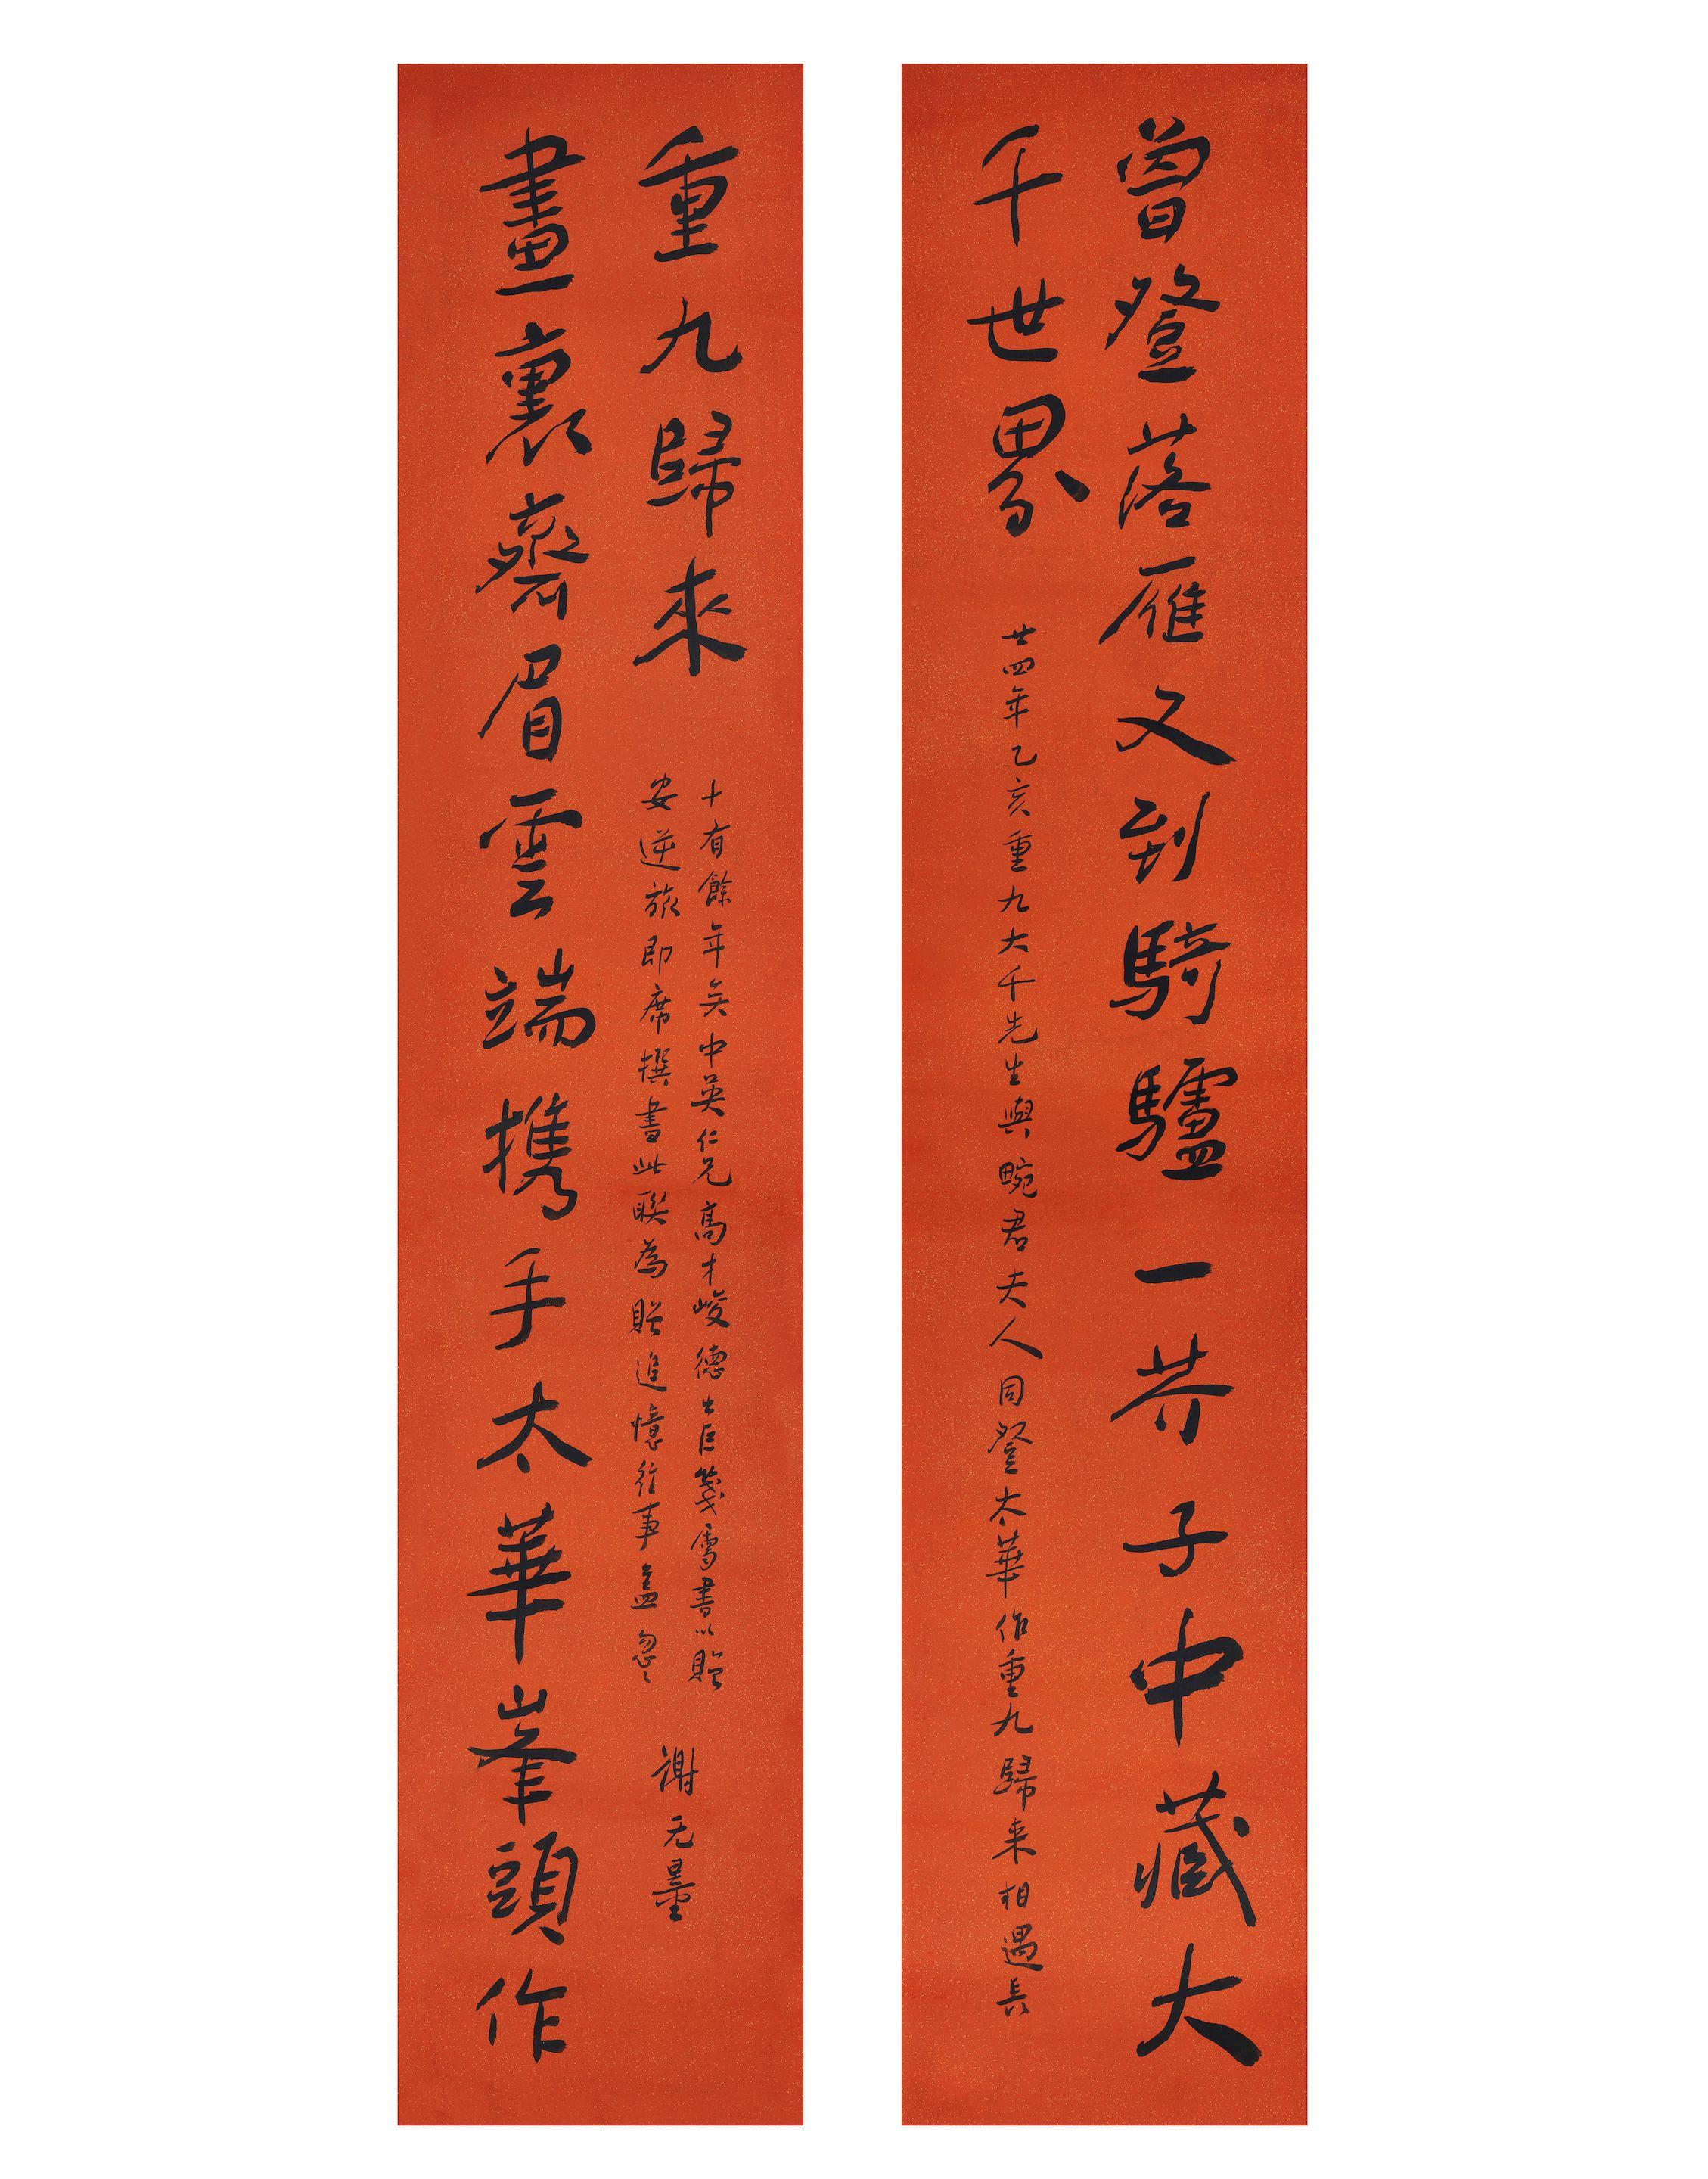 曾登落雁又到騎驢一芥子中藏大
千世界
廿四年乙亥重九大千先生與畹君夫人同登太華作重九歸来相遇長
畫裏齊眉雲端携手太華峯頭作
重九歸來
安逆旅即席撰書此聯為贈追憶往事盖忽〻
十有餘年矣中英仁兄高才峻德出巨箋屬書以贈
謝无量